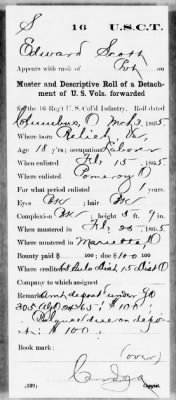 S 16 U.S.C.T.
Edward Scott
Appears with rank of Pvt on
Muster and Descriptive Roll of a Detach-
ment of U. S. Vols. forwarded
for the 16 Reg't U. S. Col'd Infantry. Roll dated
Columbus, O Mch 3, 1865.
Where born Va,
Age 18 y'rs; occupation Laborer
When enlisted Feb 15, 1865
Where enlisted Pomeroy O
For what period enlisted 1 years.
Eyes Bk; hair Bk
Complexion Bk; height 5 ft. 9 in.
When mustered in Feb 23, 1865
Where mustered in Marietta O
Bounty paid $ 100; due $ 100
Where credited 15 Dist O
Company to which assigned
Remarks: Amt deposit under GO
305 65: $
Balance due on depo-
sit $ 100
Book mark:
(over)
(339) Copyist.